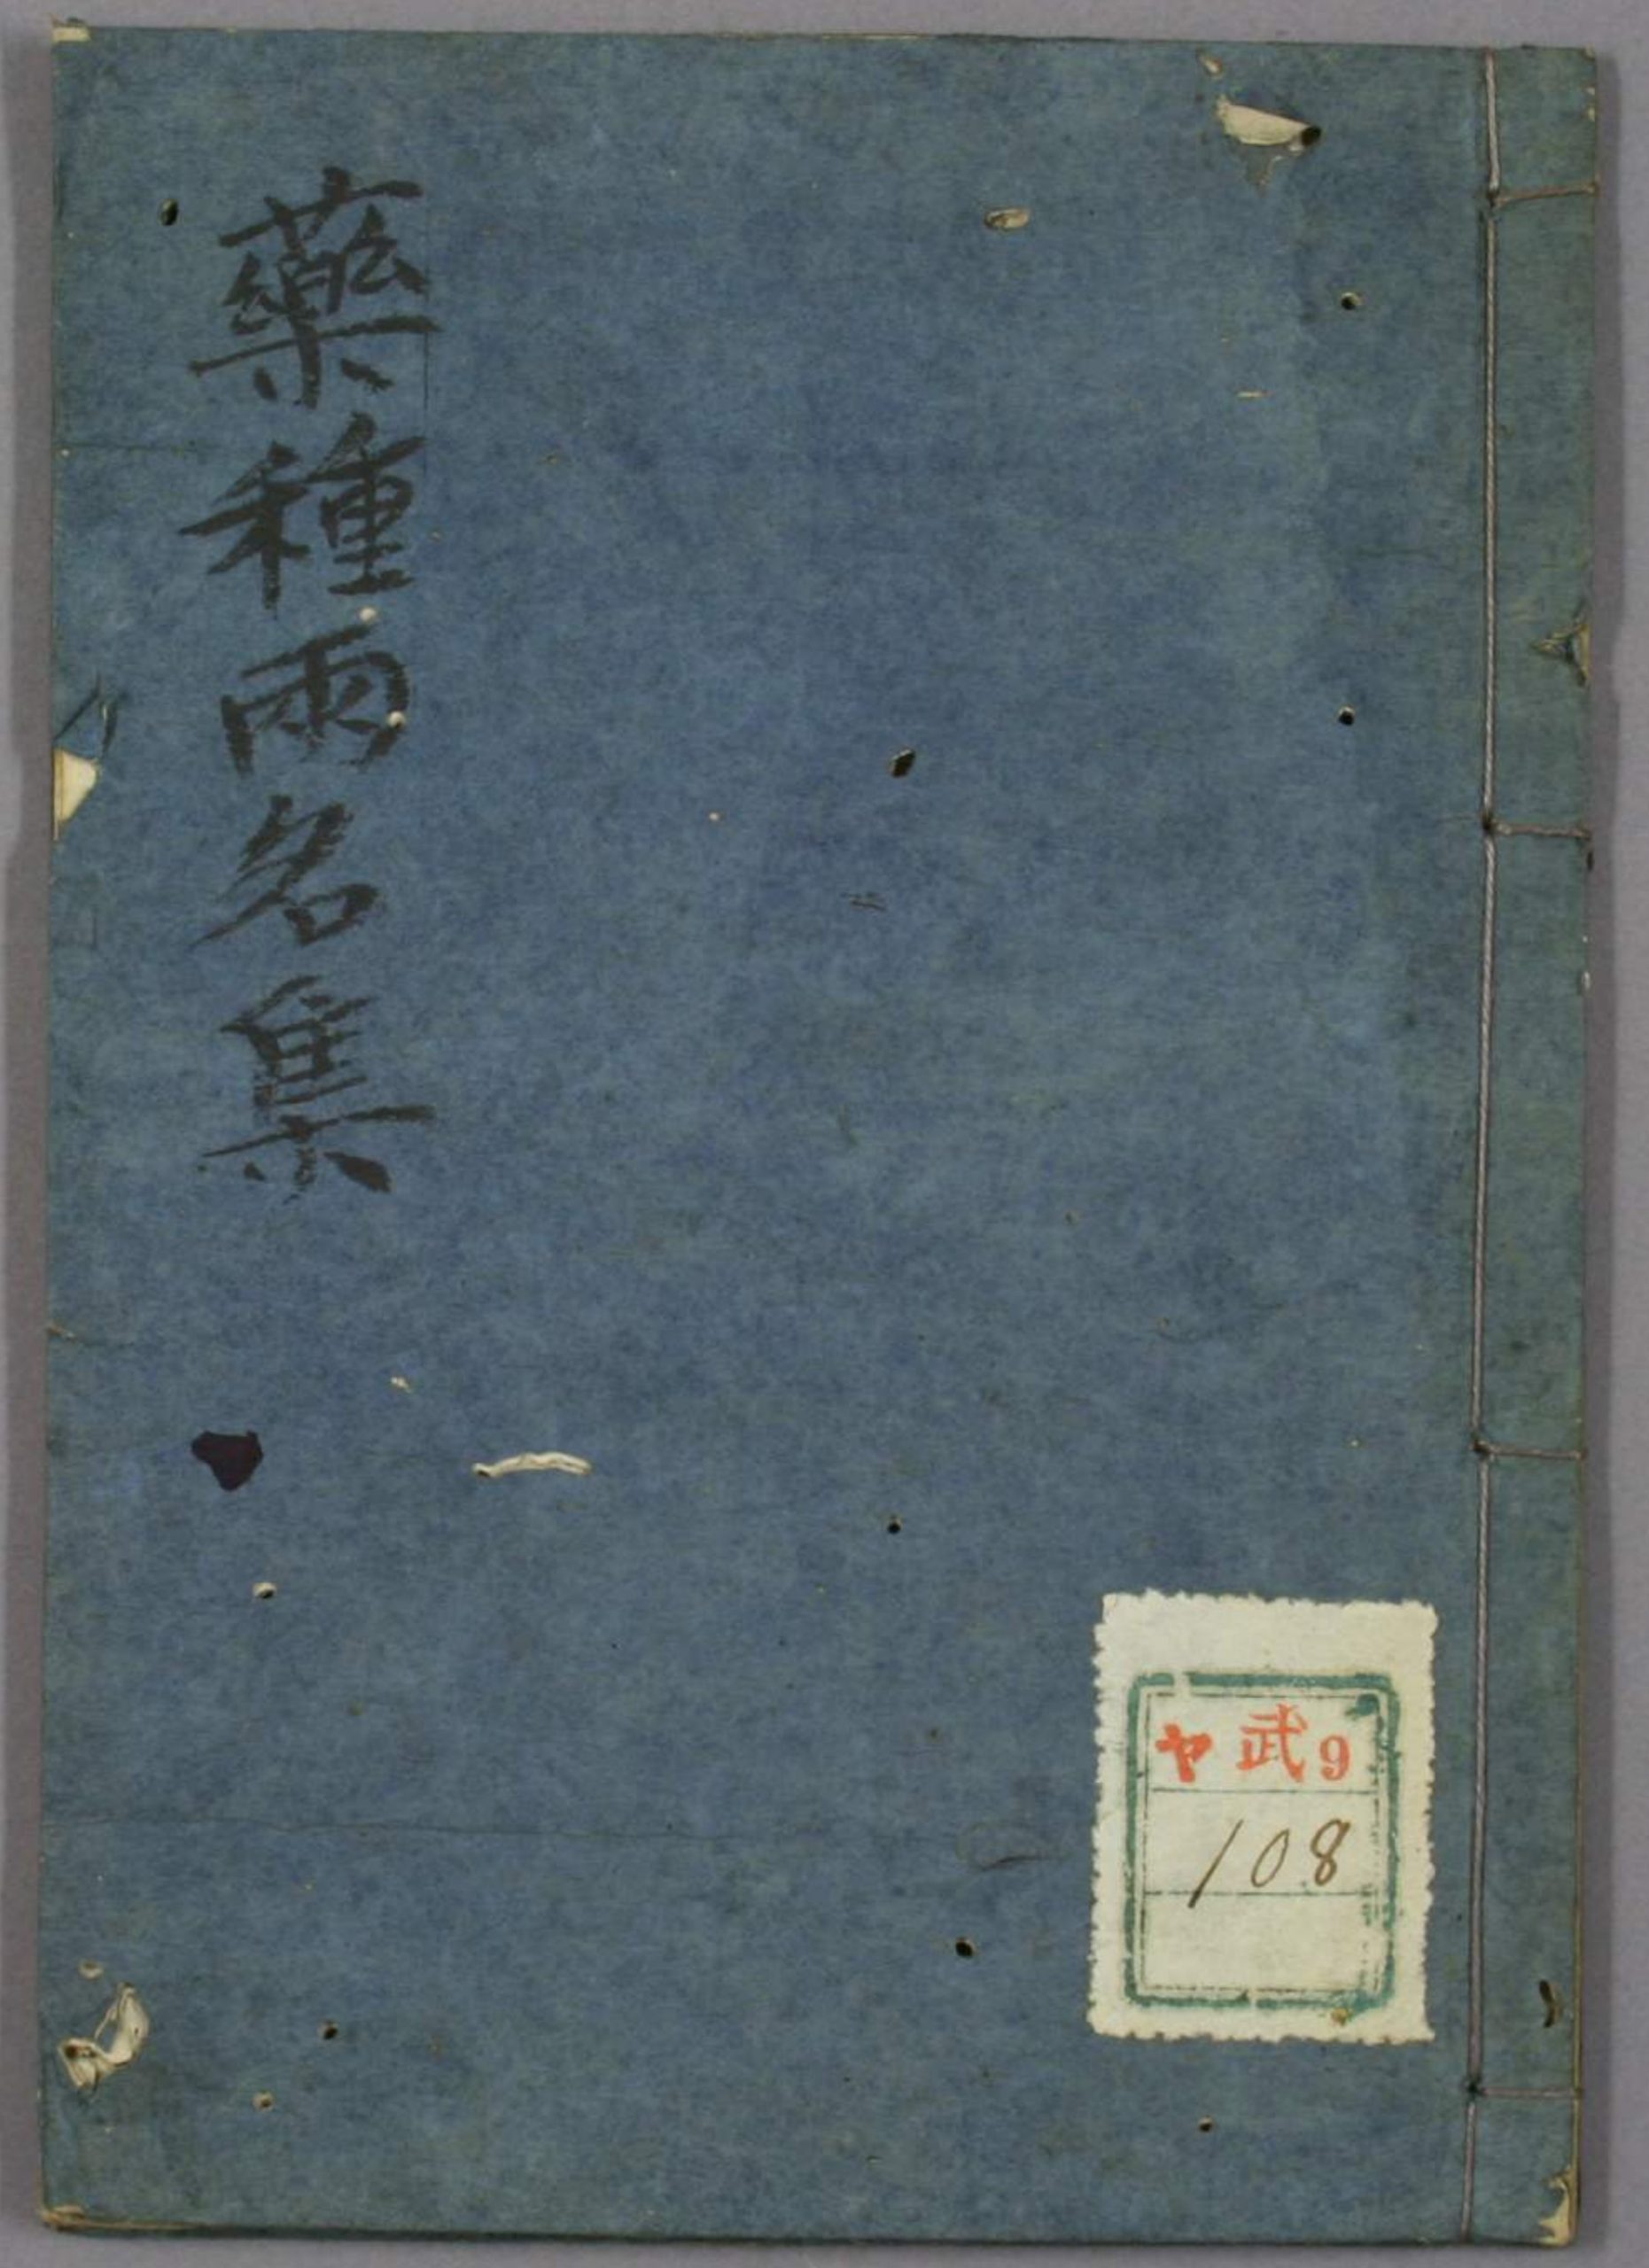 藥種両名集
ヤ武9
108